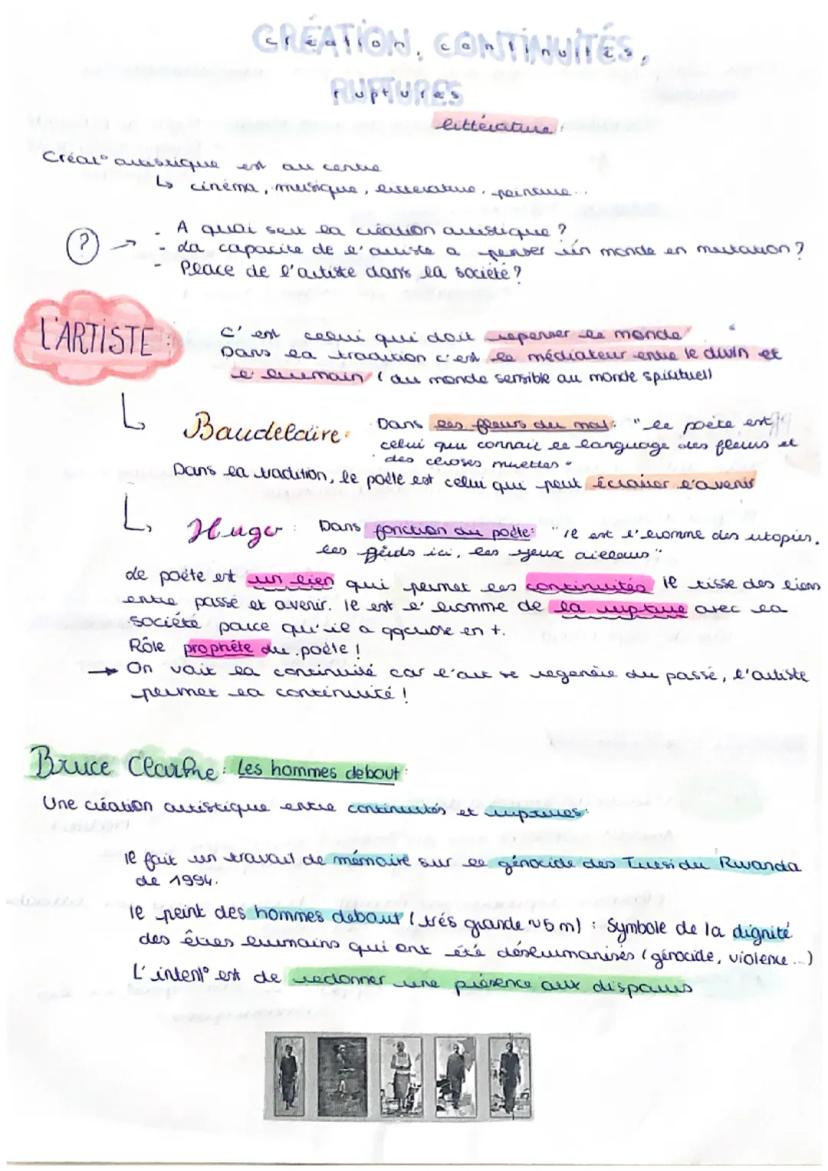 CRÉATION, CONTINUITÉS,
RUPTURES
littérature:
Créat° artistique est au centre
↳ cinéma, musique, litterature, peinture...
? → - A quoi sert la création artistique?
- La capacité de l'artiste a penser un monde en mutation?
- Place de l'artiste dans la société?
L'ARTISTE: C'est celui qui doit repenser le monde
Dans la tradition c'est le médiateur entre le divin et
le humain (du monde sensible au monde spirituel)
↳ Baudelaire: Dans les fleurs du mal: "le poète est
celui qui connait le language des fleurs et
des choses muettes"
Dans la tradition, le poète est celui qui peut éclairer l'avenir
↳ Hugo: Dans fonction du poète: "Il est l'homme des utopies,
les pieds ici, les yeux ailleurs"
Le poète est un lien qui permet les continuités Il tisse des liens
entre passé et avenir. Il est l'homme de la rupture avec la
société parce qu'il a qqchose en +.
Rôle prophète du poète!
→ On voit la continuité car l'art se regenère du passé, l'artiste
permet la continuité!
Bruce Clarke: Les hommes debout:
Une création artistique entre continuités et ruptures:
Il fait un travail de mémoire sur le génocide des Tutsi du Rwanda
de 1994.
Il peint des hommes debout (très grande ~5m) : Symbole de la dignité
des êtres humains qui ont été déshumanisés (génocide, violence...)
L'intent° est de redonner une présence aux disparus